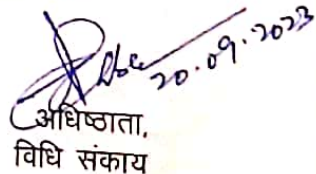 20.09.2023
अधिष्ठाता,
विधि संकाय